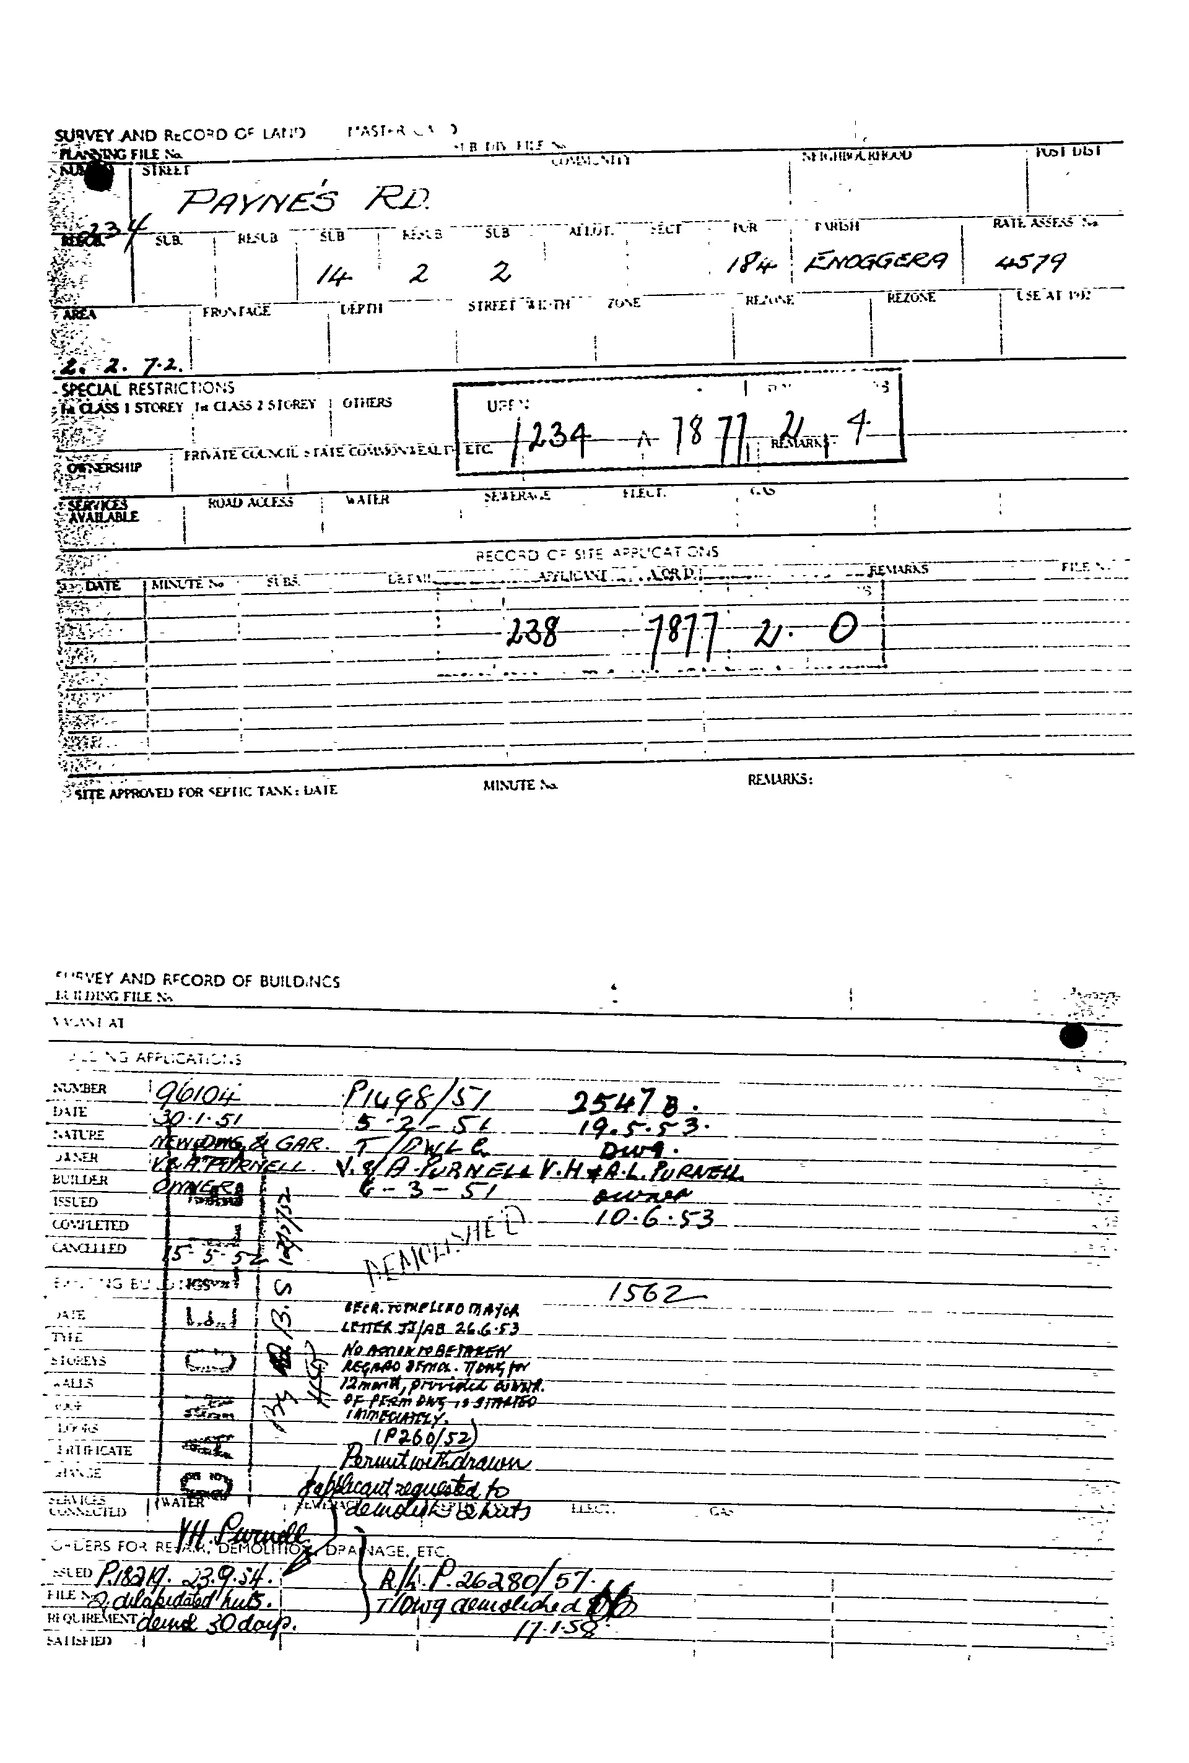 SURVEY AND RECORD OF LAND MASTER CARD
PLANNING FILE No. SUB DIV. FILE No.
NUMBER STREET COMMUNITY NEIGHBOURHOOD POST DIST
PAYNE'S RD.
234
RESUB. SUB. RESUB SUB RESUB SUB ALLOT. SECT POR PARISH RATE ASSESS No.
14 2 2 184 ENOGGERA 4579
AREA FRONTAGE DEPTH STREET WIDTH ZONE REZONE REZONE USE AT
2. 2. 7.2.
SPECIAL RESTRICTIONS
1st CLASS 1 STOREY 1st CLASS 2 STOREY OTHERS
234 A 7877 2 4
OWNERSHIP PRIVATE COUNCIL STATE COMMONWEALTH ETC. REMARKS
SERVICES AVAILABLE ROAD ACCESS WATER SEWERAGE ELECT. GAS
RECORD OF SITE APPLICATIONS
DATE MINUTE No. SUBS. DETAIL APPLICANT A OR D REMARKS FILE No.
238 7877 2. 0
SITE APPROVED FOR SEPTIC TANK: DATE MINUTE No. REMARKS:
SURVEY AND RECORD OF BUILDINGS
BUILDING FILE No.
VACANT AT
BUILDING APPLICATIONS
NUMBER 96104 P1498/51 2547 B.
DATE 30.1.51 5-2-51 19.5.53.
NATURE NEW DWG. & GAR. T/DWLG. DWG.
OWNER V. & A. PURNELL. V. & A. PURNELL V.H & A.L. PURNELL.
BUILDER OWNERS 6-3-51 owner
ISSUED 10.6.53
COMPLETED DEMOLISHED
CANCELLED 15-5-52
CANCELLED
EXISTING BUILDINGS 1562
DATE REFR. TO THE LORD MAYOR
LETTER JJ/AB 26.6.53
TYPE NO ACTION TO BE TAKEN
STOREYS REGARD DEMOL. T/DWG FOR
WALLS 12 month, provided
ROOF OF PERM DWG IS STARTED
FLOORS IMMEDIATELY.
(P260/52)
CERTIFICATE Permit withdrawn
CHANGE applicant requested to
SERVICES CONNECTED WATER SEWERAGE demolish 2 huts ELECT. GAS
VH. Purnell
ORDERS FOR REPAIR, DEMOLITION, DRAINAGE, ETC.
ISSUED 23.9.54. R/L P.26280/57.
FILE No. 2 dilapidated huts. T/Dwg demolished
REQUIREMENT demol 30 days. 17.1.58
SATISFIED